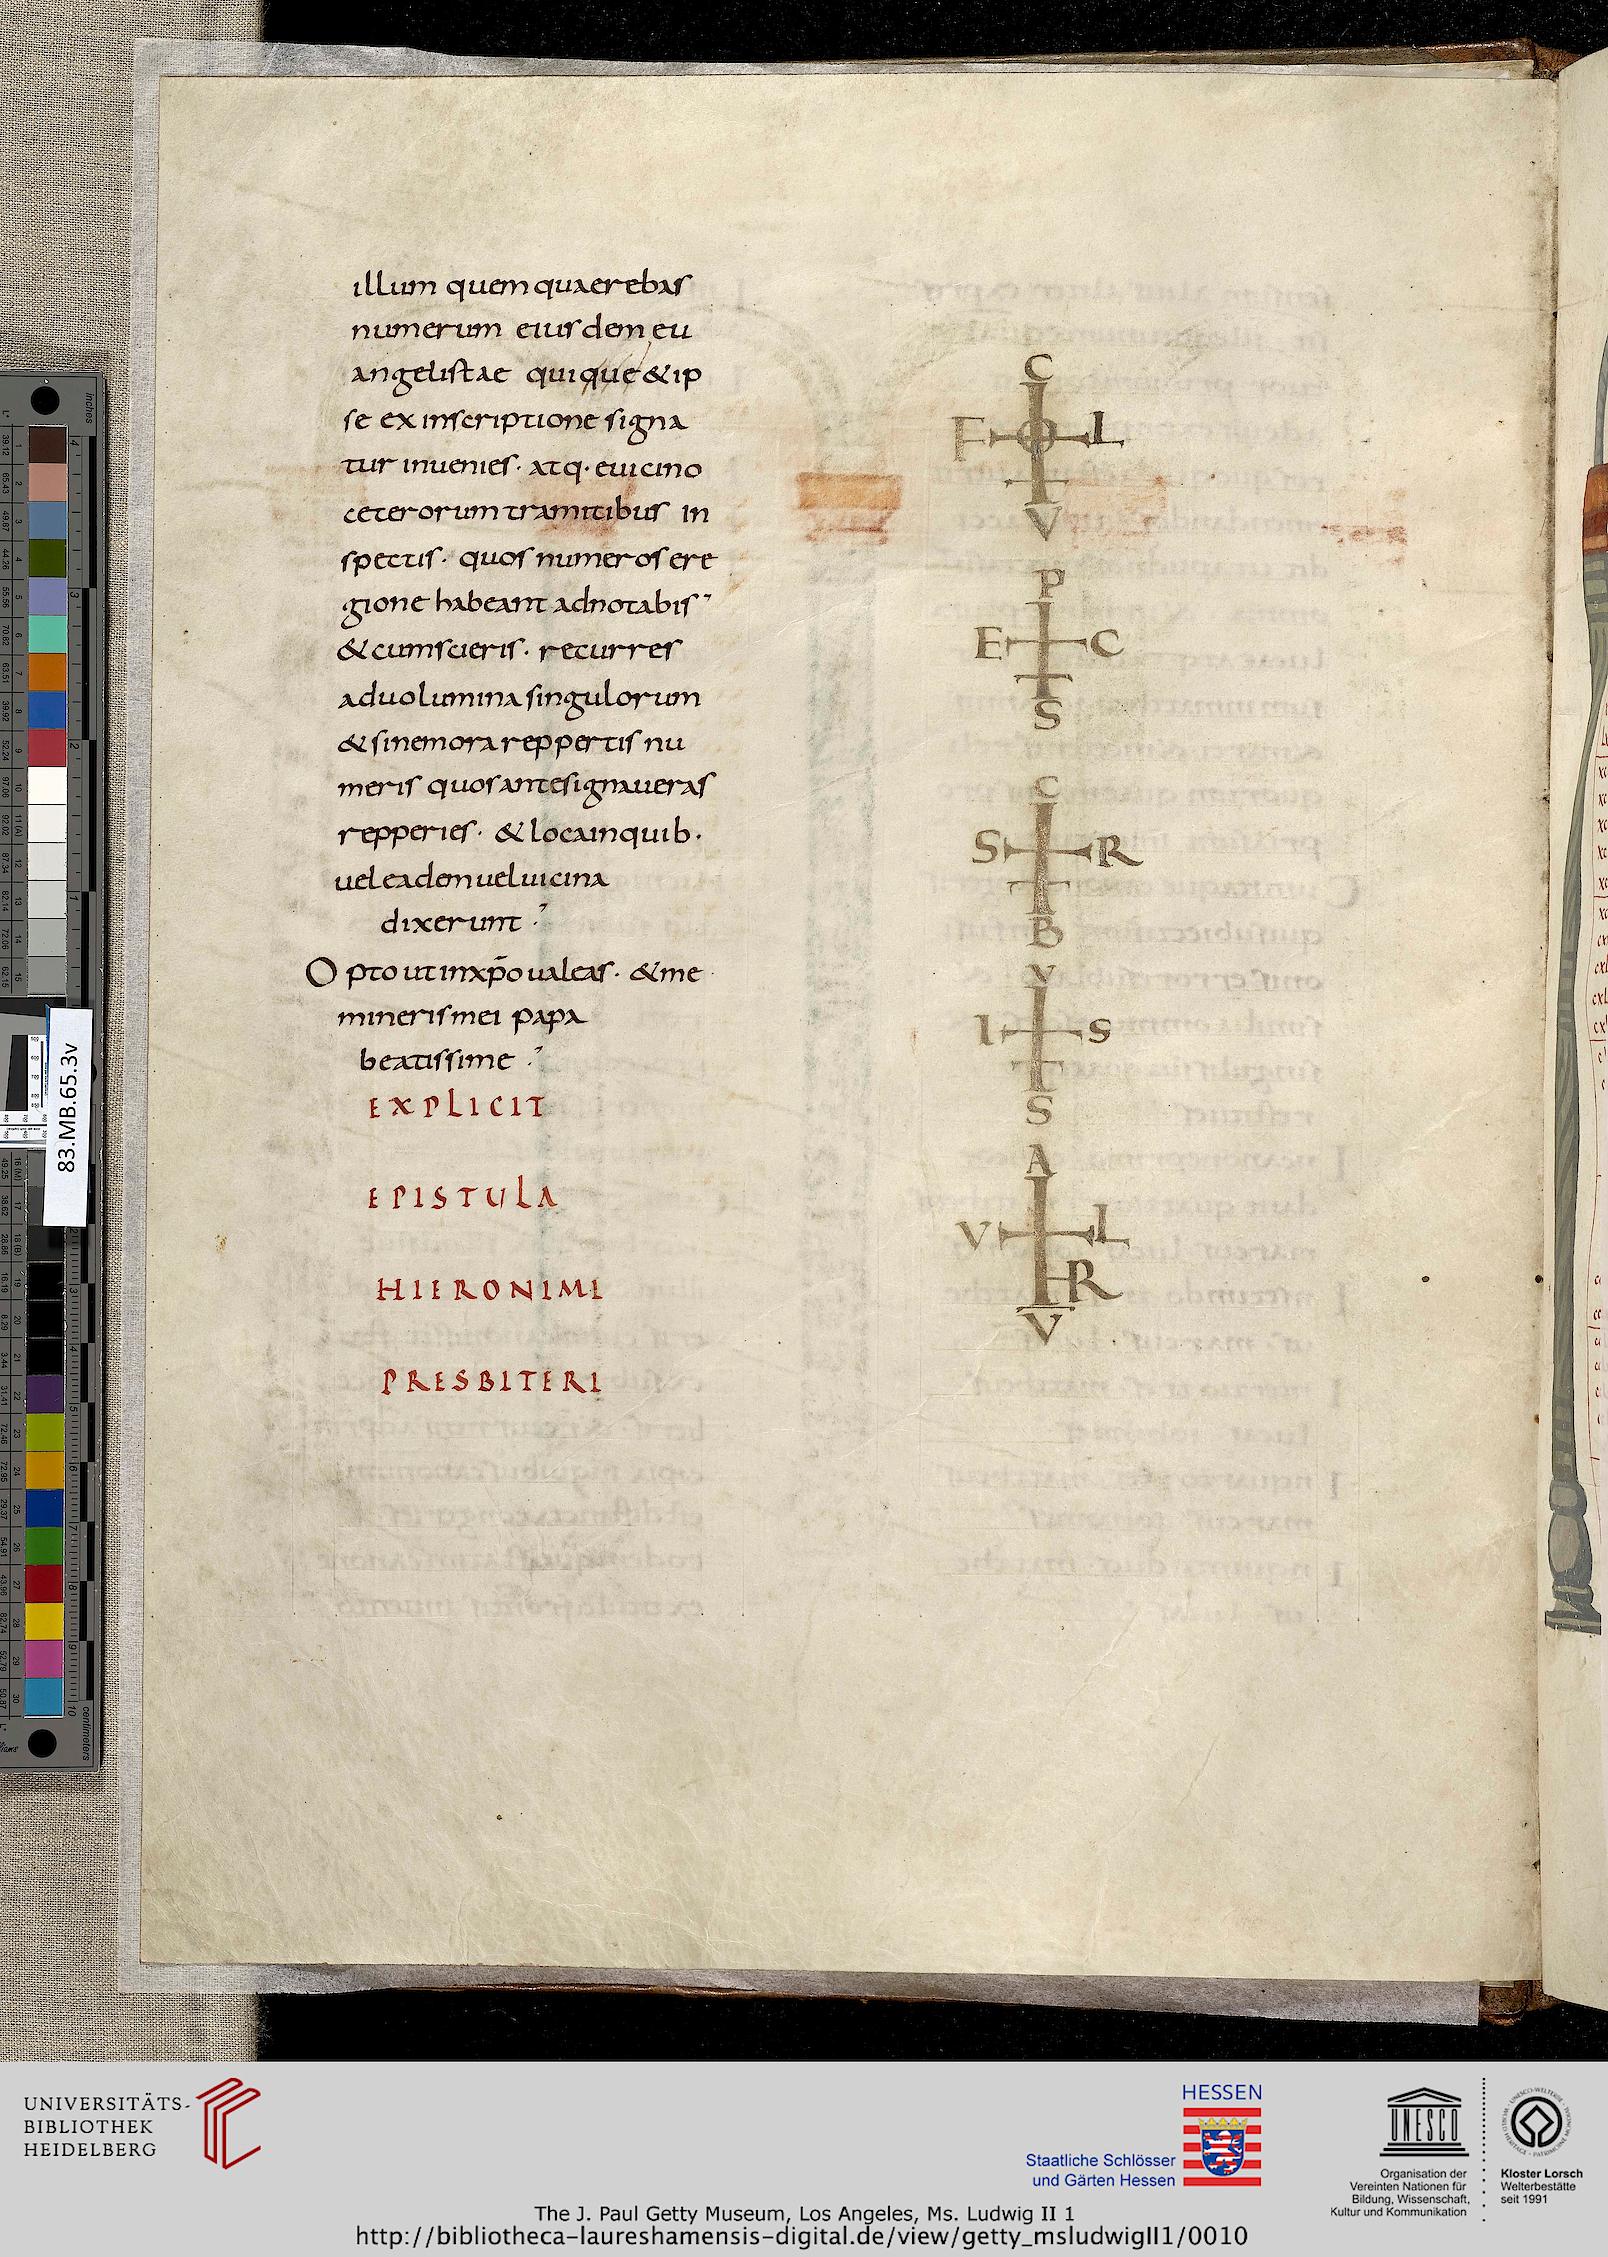 illum quem quaerebas
numerum eiusdem eu
angelistae quique & ip
se ex inscriptione signa
tur inuenies· atq· euicino
ceterorum tramitibus in
spectis· quos numeros ere
gione habeant adnotabis
& cum scieris· recurres
ad uolumina singulorum
& sine mora reppertis nu
meris quos ante signaueras
repperies· & loca in quib·
uel eadem uel uicina
dixerunt
Opto ut in xp̄o ualeas· & me
mineris mei papa
beatissime
EXPLICIT
EPISTULA
HIERONIMI
PRESBITERI
C
F O L
V
P
E C
S
C
S R
B
V
I S
S
A
V L
R
V
83.MB.65.3v
inches
centimeters
UNIVERSITÄTS-
BIBLIOTHEK
HEIDELBERG
HESSEN
Staatliche Schlösser
und Gärten Hessen
UNESCO
Organisation der
Vereinten Nationen für
Bildung, Wissenschaft,
Kultur und Kommunikation
Kloster Lorsch
Welterbestätte
seit 1991
The J. Paul Getty Museum, Los Angeles, Ms. Ludwig II 1
http://bibliotheca-laureshamensis-digital.de/view/getty_msludwigII1/0010